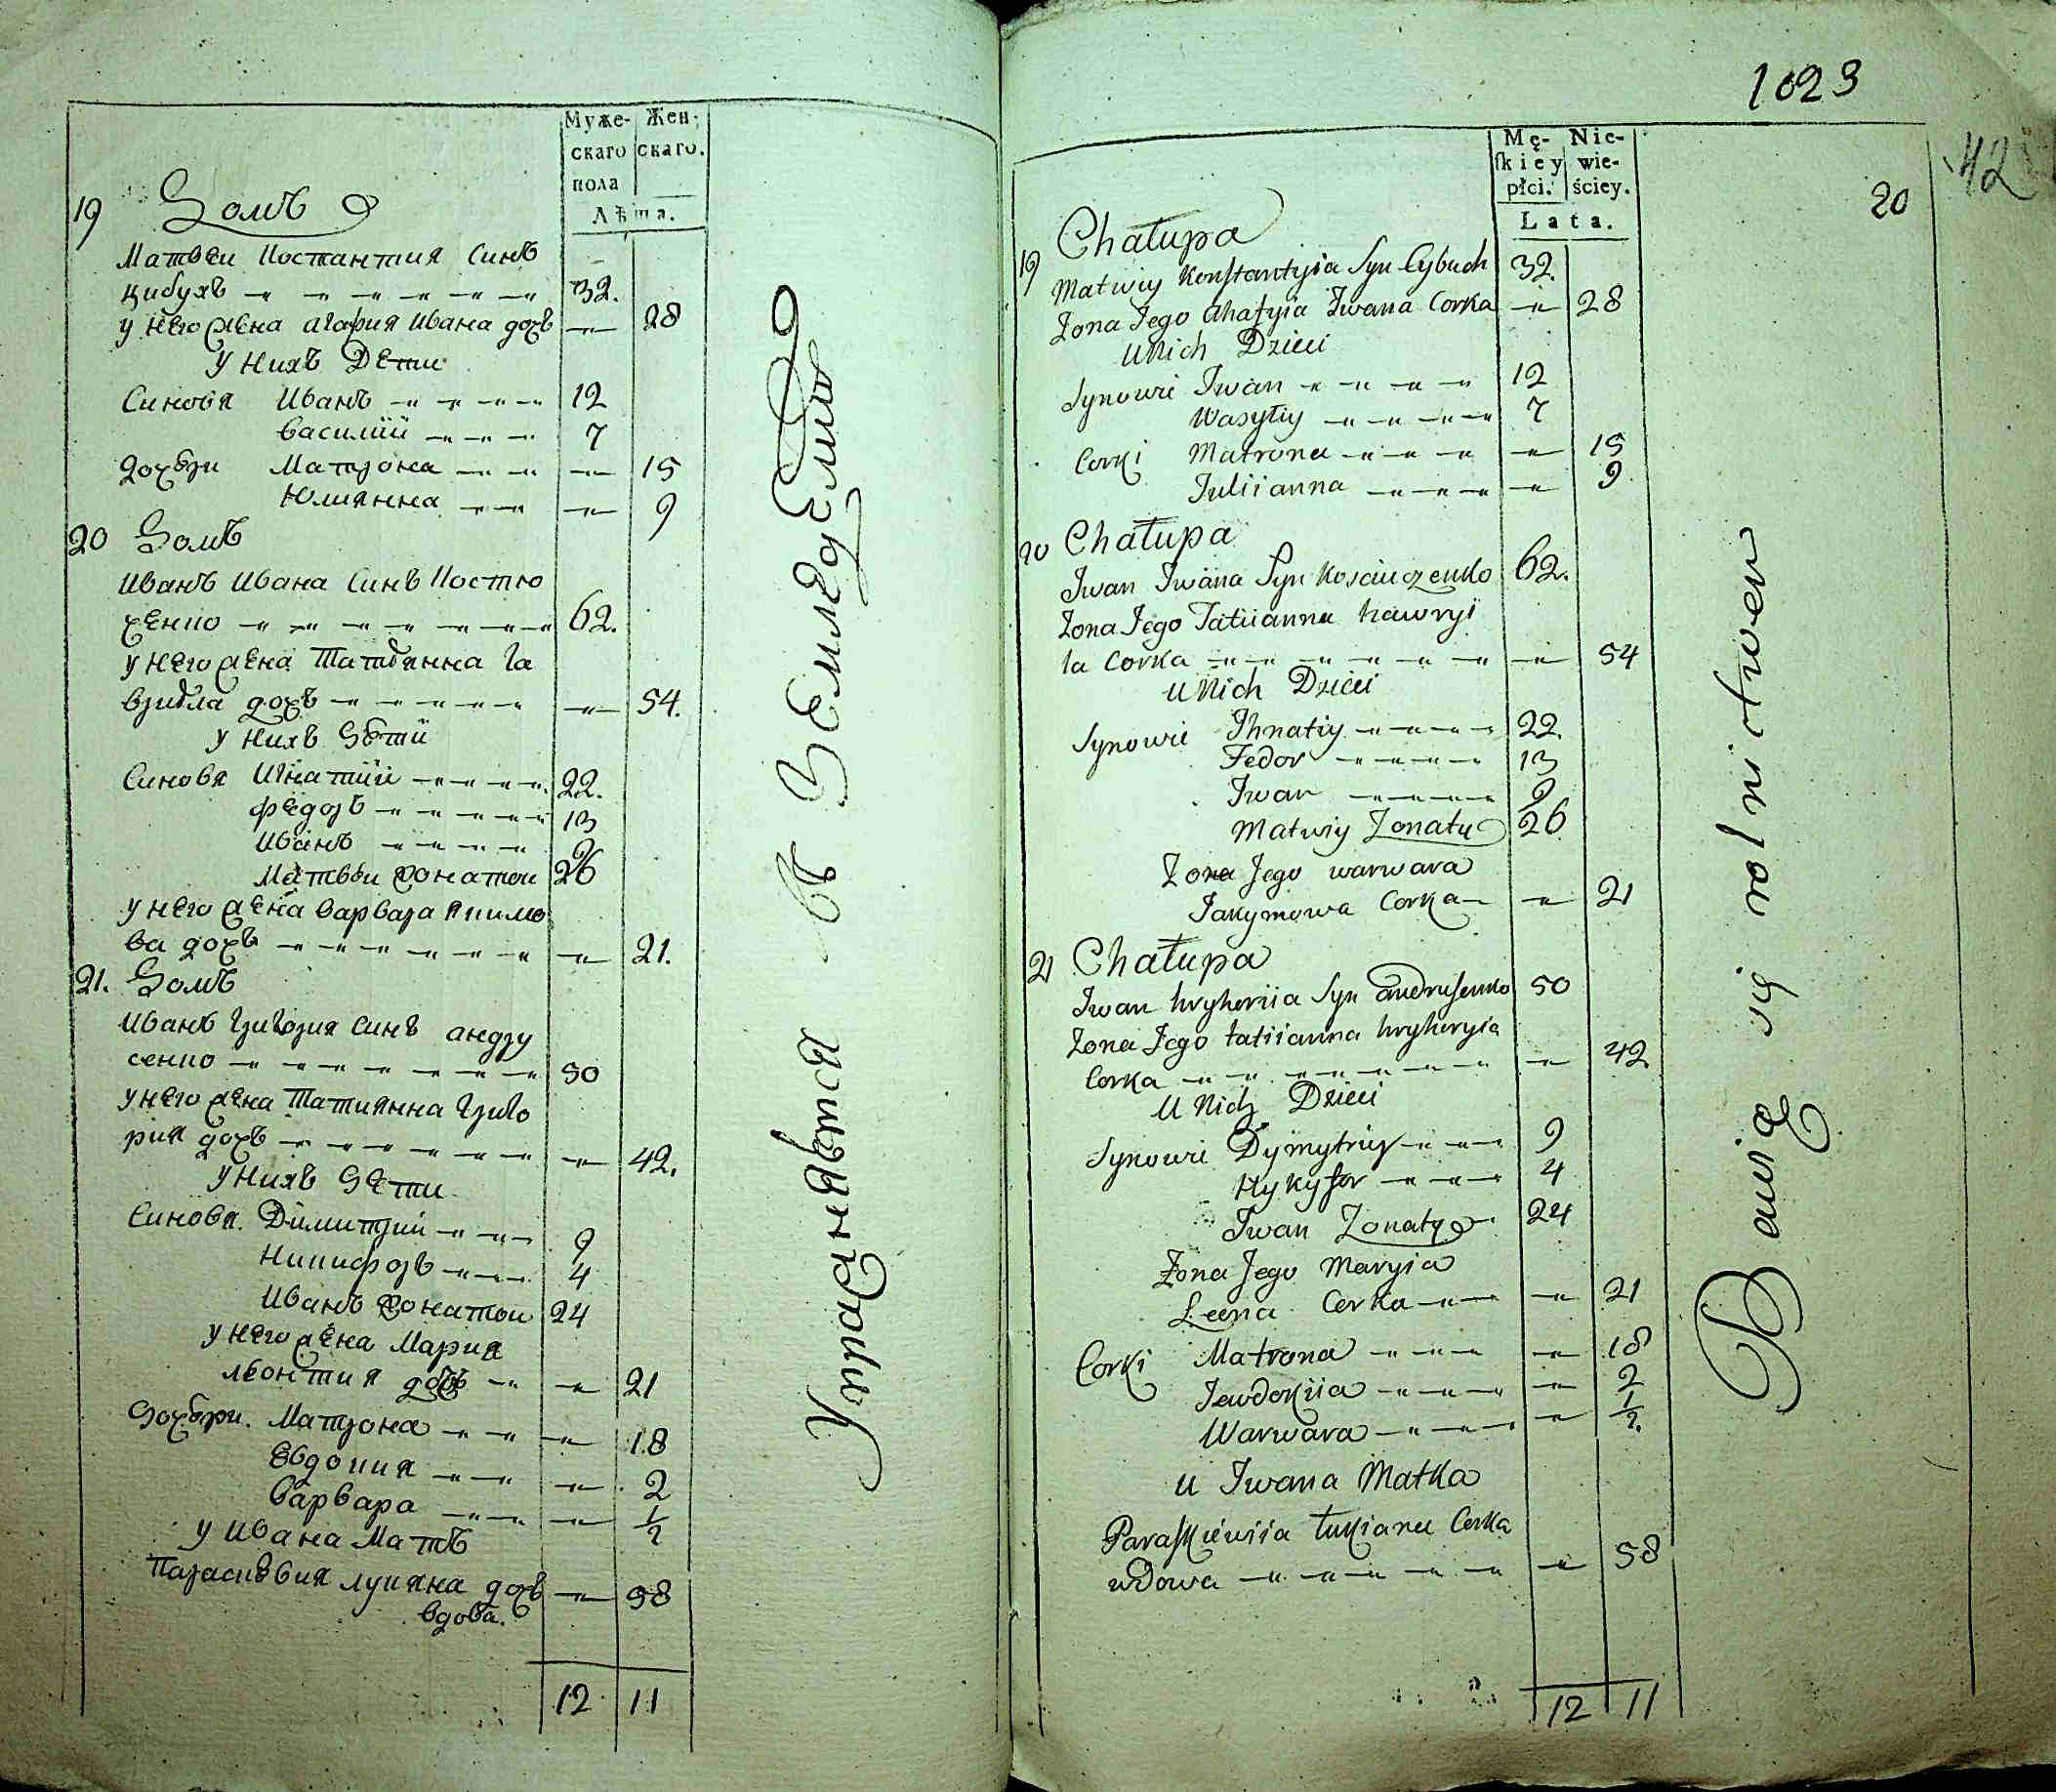 Муже- Жен-
скаго скаго.
пола
Лѣта.
19 Домъ
Матвеи Костантия Синъ
Цибухъ 32.
у него жена агафия Ивана дохъ 28
у нихъ Дети
Синовя Иванъ 12
Василий 7
дохѣри Матрона 15
Юлиянна 9
20 Домъ
Иванъ Ивана Синъ Костю
ченко 62.
у него жена Татиянна Га
вриила дохъ 54.
у нихъ дети
Синовя Игнатий 22.
Федоръ 13
Иванъ 9
Матвѣи жонатои 26
у него жена варвара якимо
ва дохъ 21.
21. Домъ
Иванъ григория Синъ андру
сенко 50
у него жена Татиянна григо
рия дохъ 42.
у нихъ дети
Синовя. Димитрий 9
Никифоръ 4
Иванъ жонатои 24
у него жена Мария
леонтия дохъ 21
дохѣри. Матрона 18
Евдокия 2
варвара 1/2
у Ивана Матъ
Параскѣвия лукяна дохъ 58
вдова.
12 11
Упражняются въ Земледелии
1023
42
20
Mę- Nie-
skiey wie-
płci. ściey.
Lata.
19 Chałupa
Matwiy Konstantyia Syn Cybuch 32.
Zona Jego Ahafyia Iwana Corka 28
U Nich Dzieci
Synowie Iwan 12
Wasyliy 7
Corki Matrona 15
Juliianna 9
20 Chałupa
Iwan Iwana Syn Kosciuczenko 62.
Zona Jego Tatiianna hawryi
ła Corka 54
U Nich Dzieci
Synowie Ihnatiy 22.
Fedor 13
Iwan 9
Matwiy Zonaty 26
Zona Jego warwara
Jakymowa Corka 21
21 Chałupa
Iwan hryhoriia Syn andrusenko 50
Zona Jego tatiianna hryhoryia
Corka 42.
U Nich Dzieci
Synowie Dymytriy 9
Nykyfor 4
Iwan Zonaty 24
Zona Jego Maryia
Leona Corka 21
Corki Matrona 18
Jewdokiia 2
Warwara 1/2.
u Iwana Matka
Paraskiewiia łukiana Corka
wdowa 58
12 11
Bawią się rolnictwem